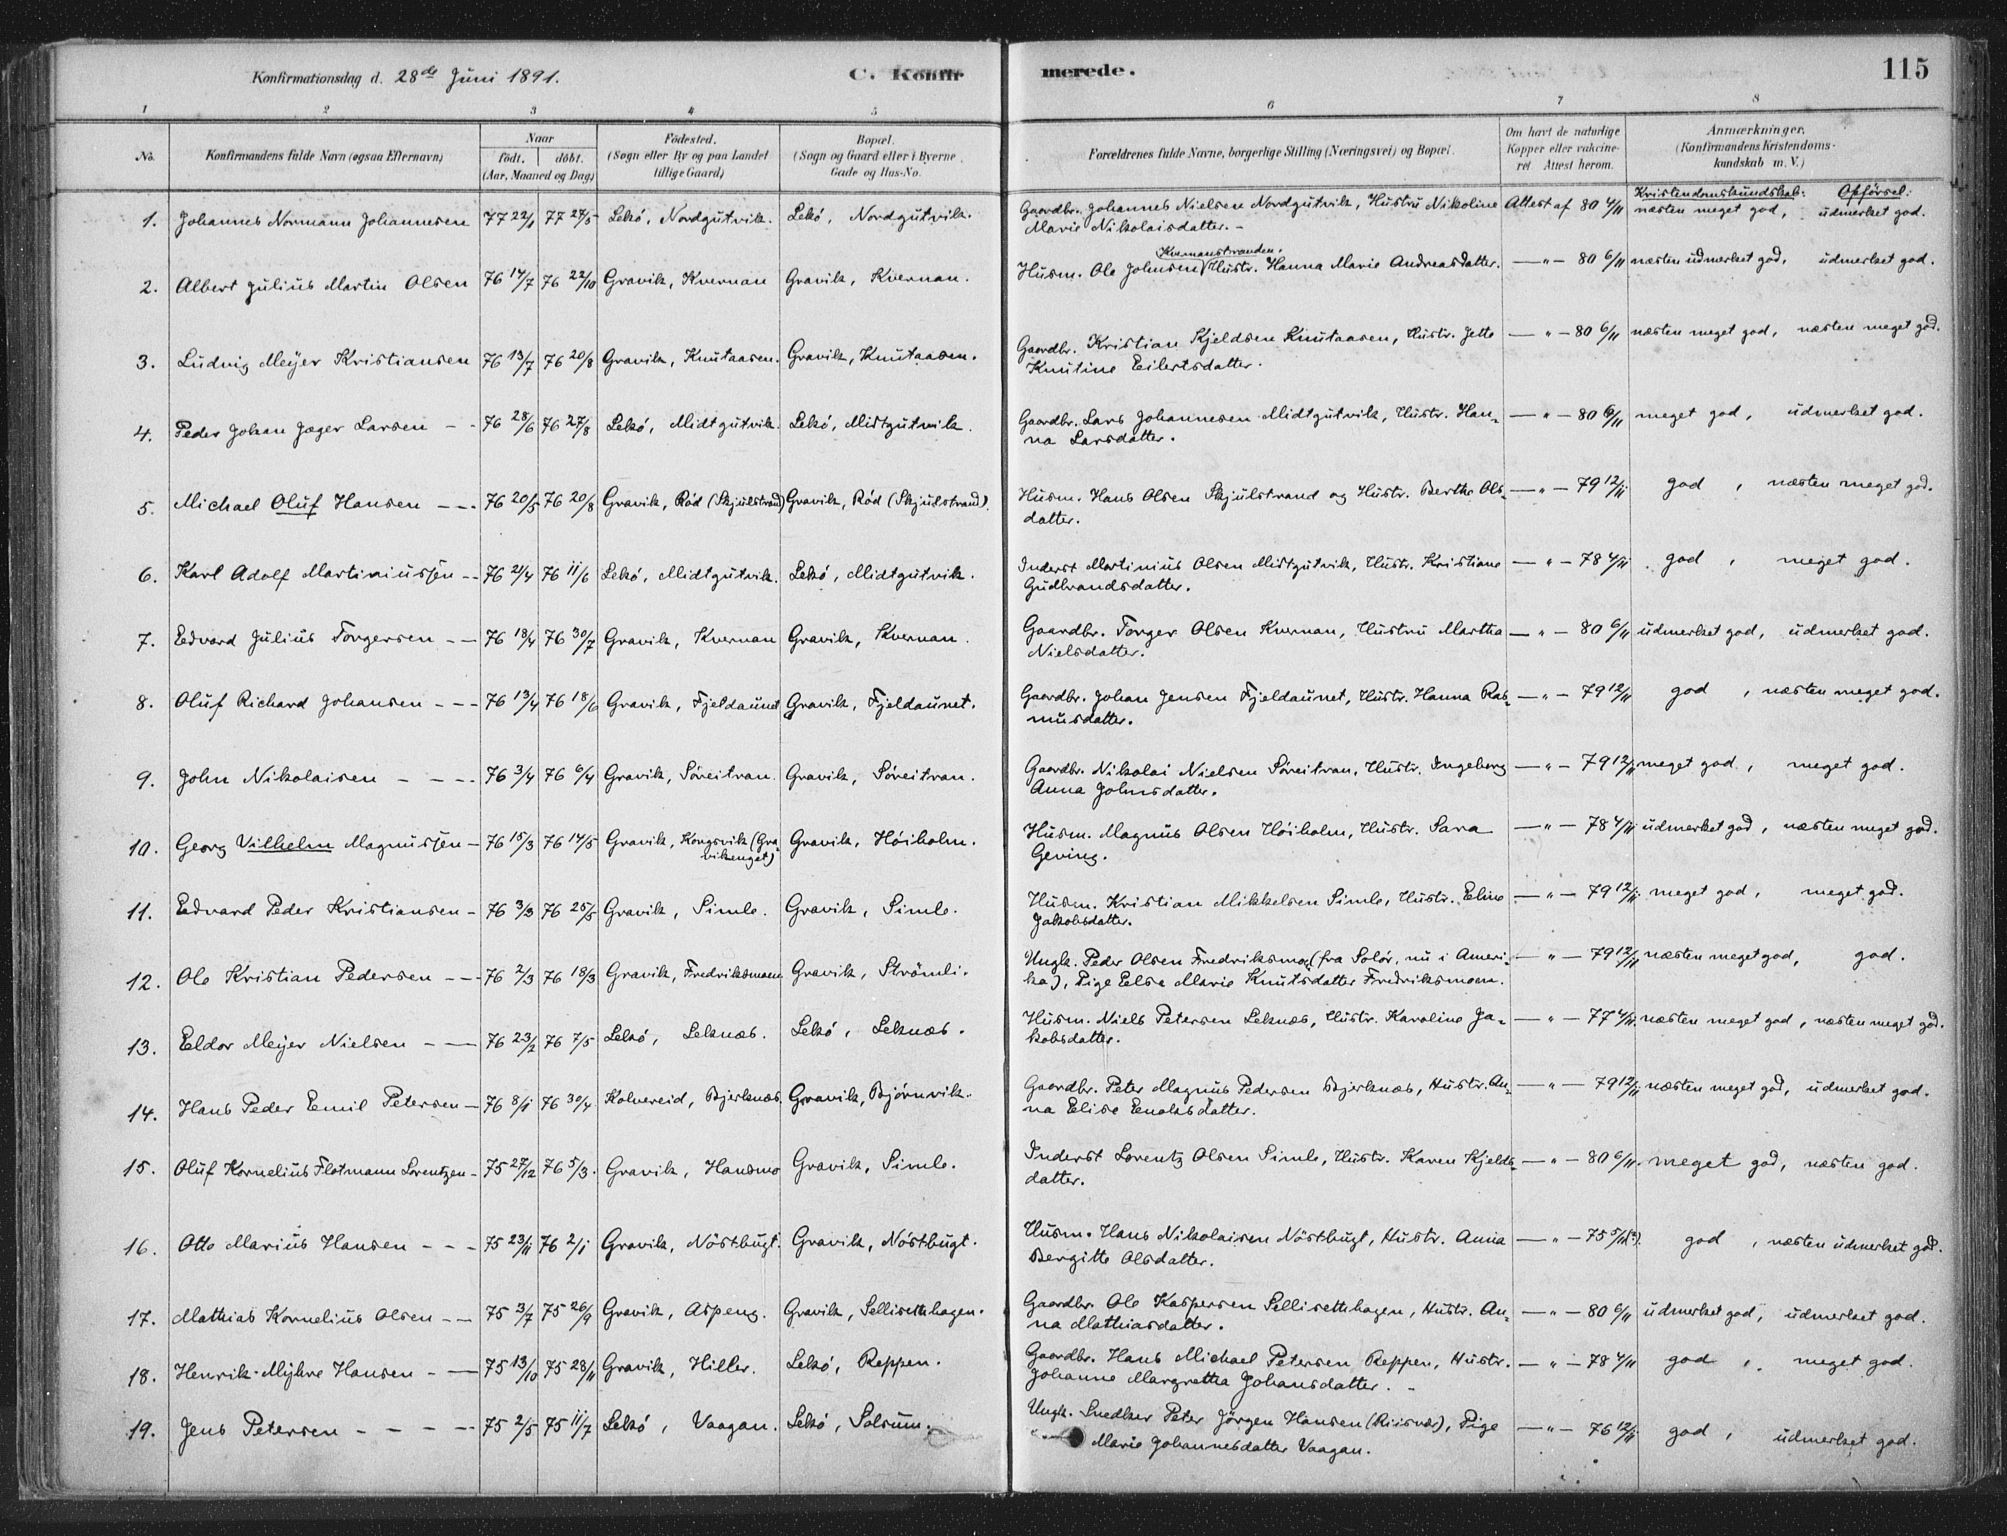 Konfirmationsdag d. 28de Juni 1891. C. Konfirmerede. 115
1 2 3 4 5 6 7 8
No. Konfirmandens fulde Navn (ogsaa Efternavn) Naar födt. döbt. (Aar, Maaned og Dag) Födested. (Sogn eller By og paa Landet tillige Gaard) Bopæl. (Sogn og Gaard eller i Byerne Gade og Hus-No. Forældrenes fulde Navne, borgerlige Stilling (Næringsvei) og Bopæl. Om havt de naturlige Kopper eller vakcineret Attest herom. Anmærkninger. (Konfirmandens Kristendomskundskab m. V.)
Kristendomskundskab: Opförsel:
1. Johannes Normann Johannesen 77 22/1 77 27/5 Lekö, Nordgutvik. Lekö, Nordgutvik. Gaardbr. Johannes Nielsen Nordgutvik, Hustru Nikoline Attest af 80 4/11 næsten meget god, udmerket god.
Marie Nikolaisdatter. -
Kvernanstranden.
2. Albert Julius Martin Olsen 76 14/7 76 22/10 Gravik, Kvernan Gravik, Kvernan. Husm. Ole Johnsen Hustr. Hanna Marie Andreasdatter. — " — 80 6/11 næsten udmerket god, udmerket god.
3. Ludvig Meyer Kristiansen 76 13/7 76 20/8 Gravik, Knutaasen. Gravik, Knutaasen. Gaardbr. Kristian Kjeldsen Knutaasen, Hustr. Jette — " — 80 6/11 næsten meget god, næsten meget god.
Knutine Eilertsdatter.
4. Peder Johan Jæger Larsen - - 76 28/6 76 27/8 Lekö, Midtgutvik. Lekö, Midtgutvik. Gaardbr. Lars Johannesen Midtgutvik, Hustr. Han- — " — 80 6/11 meget god, udmerket god.
na Larsdatter.
5. Michael Oluf Hansen - - - 76 20/5 76 20/8 Gravik, Röd (Skjulstrand) Gravik, Röd (Skjulstrand). Husm. Hans Olsen Skjulstrand og Hustr. Berthe Ols- — " — 79 12/11 god, næsten meget god.
datter.
6. Karl Adolf Martiniussen - - 76 21/4 76 11/6 Lekö, Midtgutvik. Lekö, Midtgutvik. Inderst Martinius Olsen Midtgutvik, Hustr. Kristiane — " — 78 4/11 god, meget god.
Gudbrandsdatter.
7. Edvard Julius Torgersen - - 76 18/4 76 30/7 Gravik, Kvernan Gravik, Kvernan. Gaardbr. Torger Olsen Kvernan, Hustru Martha — " — 80 6/11 udmerket god, udmerket god.
Nielsdatter.
8. Oluf Richard Johansen - - - 76 13/4 76 18/6 Gravik, Fjeldaunet Gravik, Fjeldaunet. Gaardbr. Johan Jensen Fjeldaunet, Hustr. Hanna Ras- — " — 79 12/11 god, næsten meget god.
musdatter.
9. John Nikolaisen - - - - 76 3/4 76 6/4 Gravik, Söreitran. Gravik, Söreitran. Gaardbr. Nikolai Nielsen Söreitran, Hustr. Ingeborg — " — 79 12/11 meget god, meget god.
Anna Johnsdatter.
10. Georg Vilhelm Magnussen - 76 15/3 76 14/5 Gravik, Kongsvik (Gravikenget) Gravik, Höiholm. Husm. Magnus Olsen Höiholm, Hustr. Sara — " — 78 4/11 udmerket god, næsten meget god.
Geving.
11. Edvard Peder Kristiansen - 76 3/3 76 25/5 Gravik, Simle. Gravik, Simle. Husm. Kristian Mikkelsen Simle, Hustr. Eline — " — 79 12/11 meget god, meget god.
Jakobsdatter.
12. Ole Kristian Pedersen - - 76 2/3 76 18/3 Gravik, Fredriksmoen Gravik, Strömli. Ungk. Peder Olsen Fredriksmo (fra Solör, nu i Ameri- — " — 79 12/11 næsten meget god, god.
ka), Pige Else Marie Knutsdatter Fredriksmoen.
13. Eldor Meyer Nielsen - — 76 23/2 76 7/5 Lekö, Leknæs. Lekö, Leknæs. Husm. Niels Petersen Leknæs, Hustr. Karoline Ja- — " — 77 4/11 næsten meget god, næsten meget god.
kobsdatter.
14. Hans Peder Emil Petersen — 76 8/1 76 30/4 Kolvereid, Bjerknæs. Gravik, Bjørnvik. Gaardbr. Peter Magnus Pedersen Bjerknæs, Hustr. An- — " — 79 12/11 næsten meget god, udmerket god.
na Elise Enoksdatter.
15. Oluf Kornelius Flotmann Lorentzen - 75 27/12 76 5/3. Gravik, Hansmo Gravik, Simle. Inderst Lorentz Olsen Simle, Hustr. Karen Kjelds- — " — 80 6/11. meget god, næsten god.
datter.
16. Otto Marius Hansen - - - 75 23/11 76 2/1 Gravik, Nöstbugt. Gravik, Nöstbugt. Husm. Hans Nikolaisen Nöstbugt, Hustr. Anna — " — 75 5/11(?). god, næsten udmerket god.
Bergitte Olsdatter.
17. Mathias Kornelius Olsen - — 75 3/7 75 26/9 Gravik, Aspeng. Gravik, Sellisetthagen. Gaardbr. Ole Kaspersen Sellisetthagen, Hustr. An- — " — 80 6/11 udmerket god, udmerket god.
na Mathiasdatter.
18. Henrik Myhre Hansen - — 75 13/10 75 28/11 Gravik, Hiller. Lekö, Reppen. Gaardbr. Hans Michael Petersen Reppen, Hustr. — " — 78 4/11 god, meget god.
Johanne Margretha Johansdatter. -
19. Jens Petersen - - - — 75 2/5 75 11/7 Lekö, Vaagan. Lekö, Solsum. Ungk. Snedker Peter Jörgen Hansen (Riisvær), Pige — " — 76 12/11 god, udmerket god.
Marie Johannesdatter Vaagan.